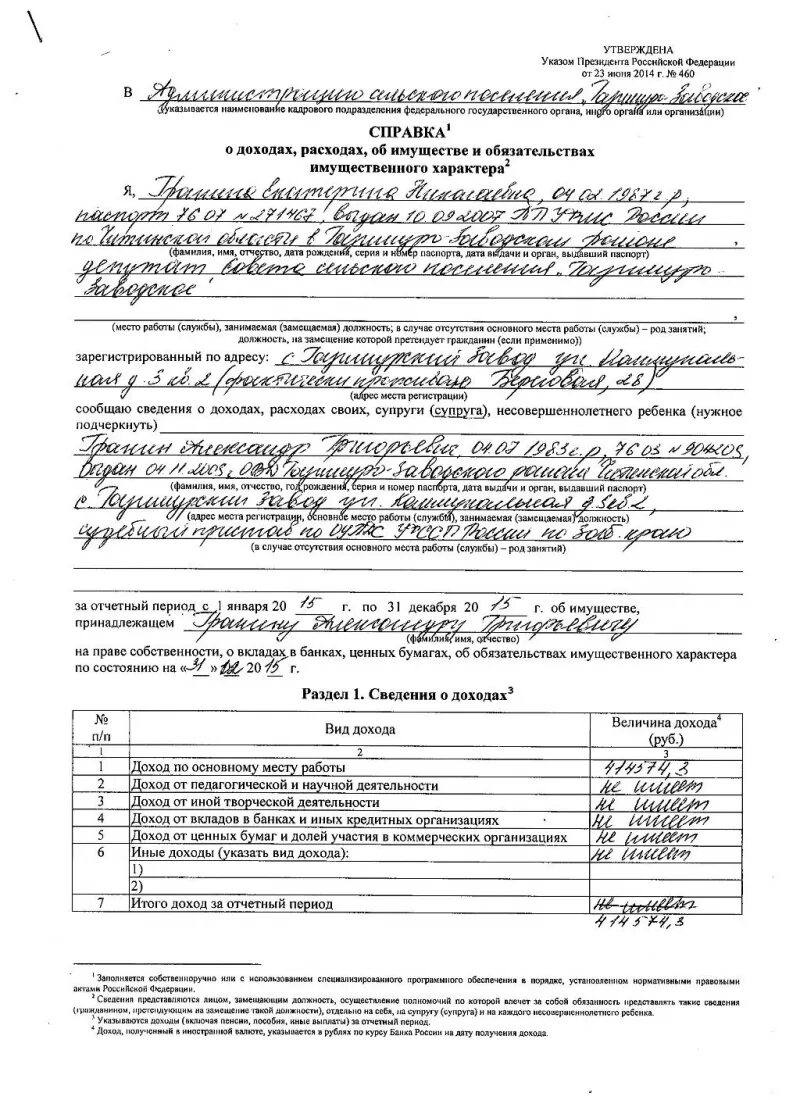 УТВЕРЖДЕНА
Указом Президента Российской Федерации
от 23 июня 2014 г. № 460
В Администрацию сельского поселения „Газимуро-Заводское"
(указывается наименование кадрового подразделения федерального государственного органа, иного органа или организации)
СПРАВКА1
о доходах, расходах, об имуществе и обязательствах
имущественного характера2
Я, Гранина Екатерина Николаевна, 04 02 1987 г.р,
паспорт 76 07 № 271467, выдан 10.09.2007 ТП УФМС России
по Читинской области в Газимуро-Заводском районе ,
(фамилия, имя, отчество, дата рождения, серия и номер паспорта, дата выдачи и орган, выдавший паспорт)
депутат Совета сельского поселения „Газимуро-
Заводское"
,
(место работы (службы), занимаемая (замещаемая) должность; в случае отсутствия основного места работы (службы) – род занятий;
должность, на замещение которой претендует гражданин (если применимо))
зарегистрированный по адресу: с Газимурский Завод ул. Коммуналь-
ная д. 3 кв. 2 (фактически проживаю Береговая, 28)
(адрес места регистрации)
сообщаю сведения о доходах, расходах своих, супруги (супруга), несовершеннолетнего ребенка (нужное
подчеркнуть)
Гранин Александр Григорьевич, 04.07 1983г.р, 76 03 №
выдан 04 11 2003г. ОВД Газимуро-Заводского района Читинской обл.
(фамилия, имя, отчество, год рождения, серия и номер паспорта, дата выдачи и орган, выдавший паспорт)
с. Газимурский Завод ул. Коммунальная д.3 кв 2,
(адрес места регистрации, основное место работы (службы), занимаемая (замещаемая) должность)
судебный пристав по ОУПДС УФССП России по Заб. краю
(в случае отсутствия основного места работы (службы) – род занятий)
за отчетный период с 1 января 20 15 г. по 31 декабря 20 15 г. об имуществе,
принадлежащем Гранину Александру Григорьевичу
(фамилия, имя, отчество)
на праве собственности, о вкладах в банках, ценных бумагах, об обязательствах имущественного характера
по состоянию на «31» 12 2015 г.
Раздел 1. Сведения о доходах3
№ п/п Вид дохода Величина дохода4 (руб.)
1 2 3
1 Доход по основному месту работы 414574,3
2 Доход от педагогической и научной деятельности не имеет
3 Доход от иной творческой деятельности не имеет
4 Доход от вкладов в банках и иных кредитных организациях не имеет
5 Доход от ценных бумаг и долей участия в коммерческих организациях не имеет
6 Иные доходы (указать вид дохода): не имеет
1)
2)
7 Итого доход за отчетный период не имеет
414574,3
1 Заполняется собственноручно или с использованием специализированного программного обеспечения в порядке, установленном нормативными правовыми
актами Российской Федерации.
2 Сведения представляются лицом, замещающим должность, осуществление полномочий по которой влечет за собой обязанность представлять такие сведения
(гражданином, претендующим на замещение такой должности), отдельно на себя, на супругу (супруга) и на каждого несовершеннолетнего ребенка.
3 Указываются доходы (включая пенсии, пособия, иные выплаты) за отчетный период.
4 Доход, полученный в иностранной валюте, указывается в рублях по курсу Банка России на дату получения дохода.